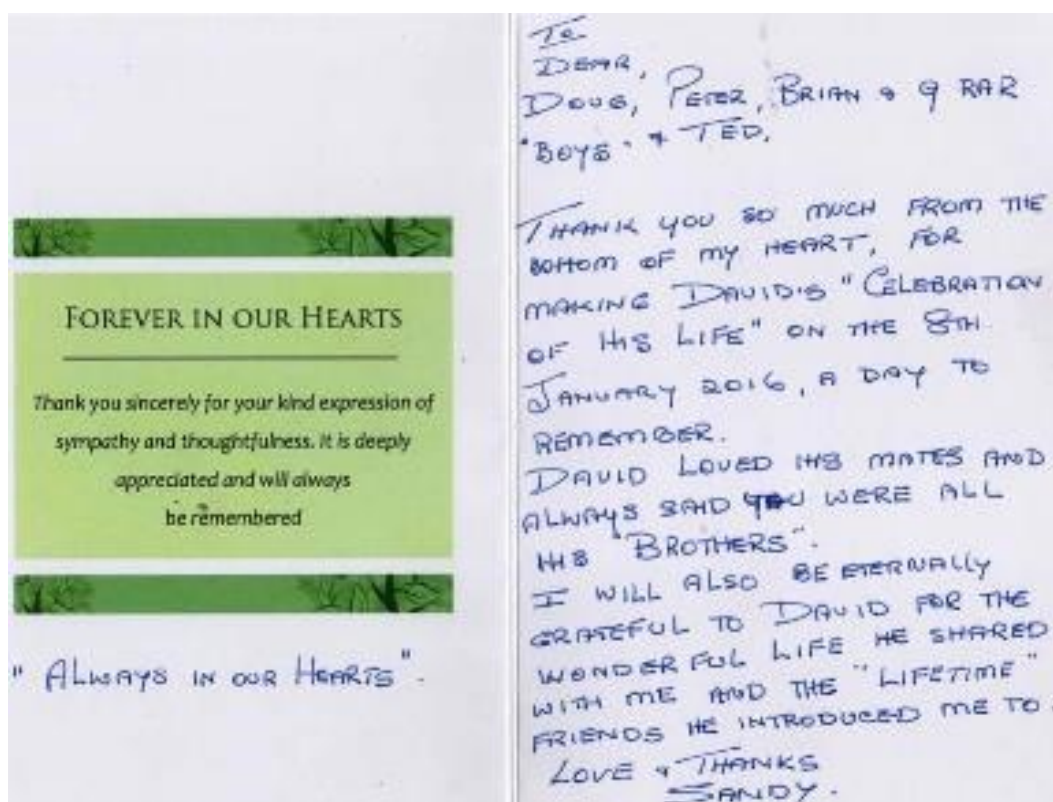 FOREVER IN OUR HEARTS
Thank you sincerely for your kind expression of
sympathy and thoughtfulness. It is deeply
appreciated and will always
be remembered
" ALWAYS IN OUR HEARTS".
To
DEAR,
DOUG, PETER, BRIAN & 9 RAR
"BOYS" & TED.
THANK YOU SO MUCH FROM THE
BOTTOM OF MY HEART, FOR
MAKING DAVID'S "CELEBRATION
OF HIS LIFE" ON THE 8TH
JANUARY 2016, A DAY TO
REMEMBER.
DAVID LOVED HIS MATES AND
ALWAYS SAID YOU WERE ALL
HIS "BROTHERS".
I WILL ALSO BE ETERNALLY
GRATEFUL TO DAVID FOR THE
WONDERFUL LIFE HE SHARED
WITH ME AND THE "LIFETIME"
FRIENDS HE INTRODUCED ME TO.
LOVE & THANKS
SANDY.